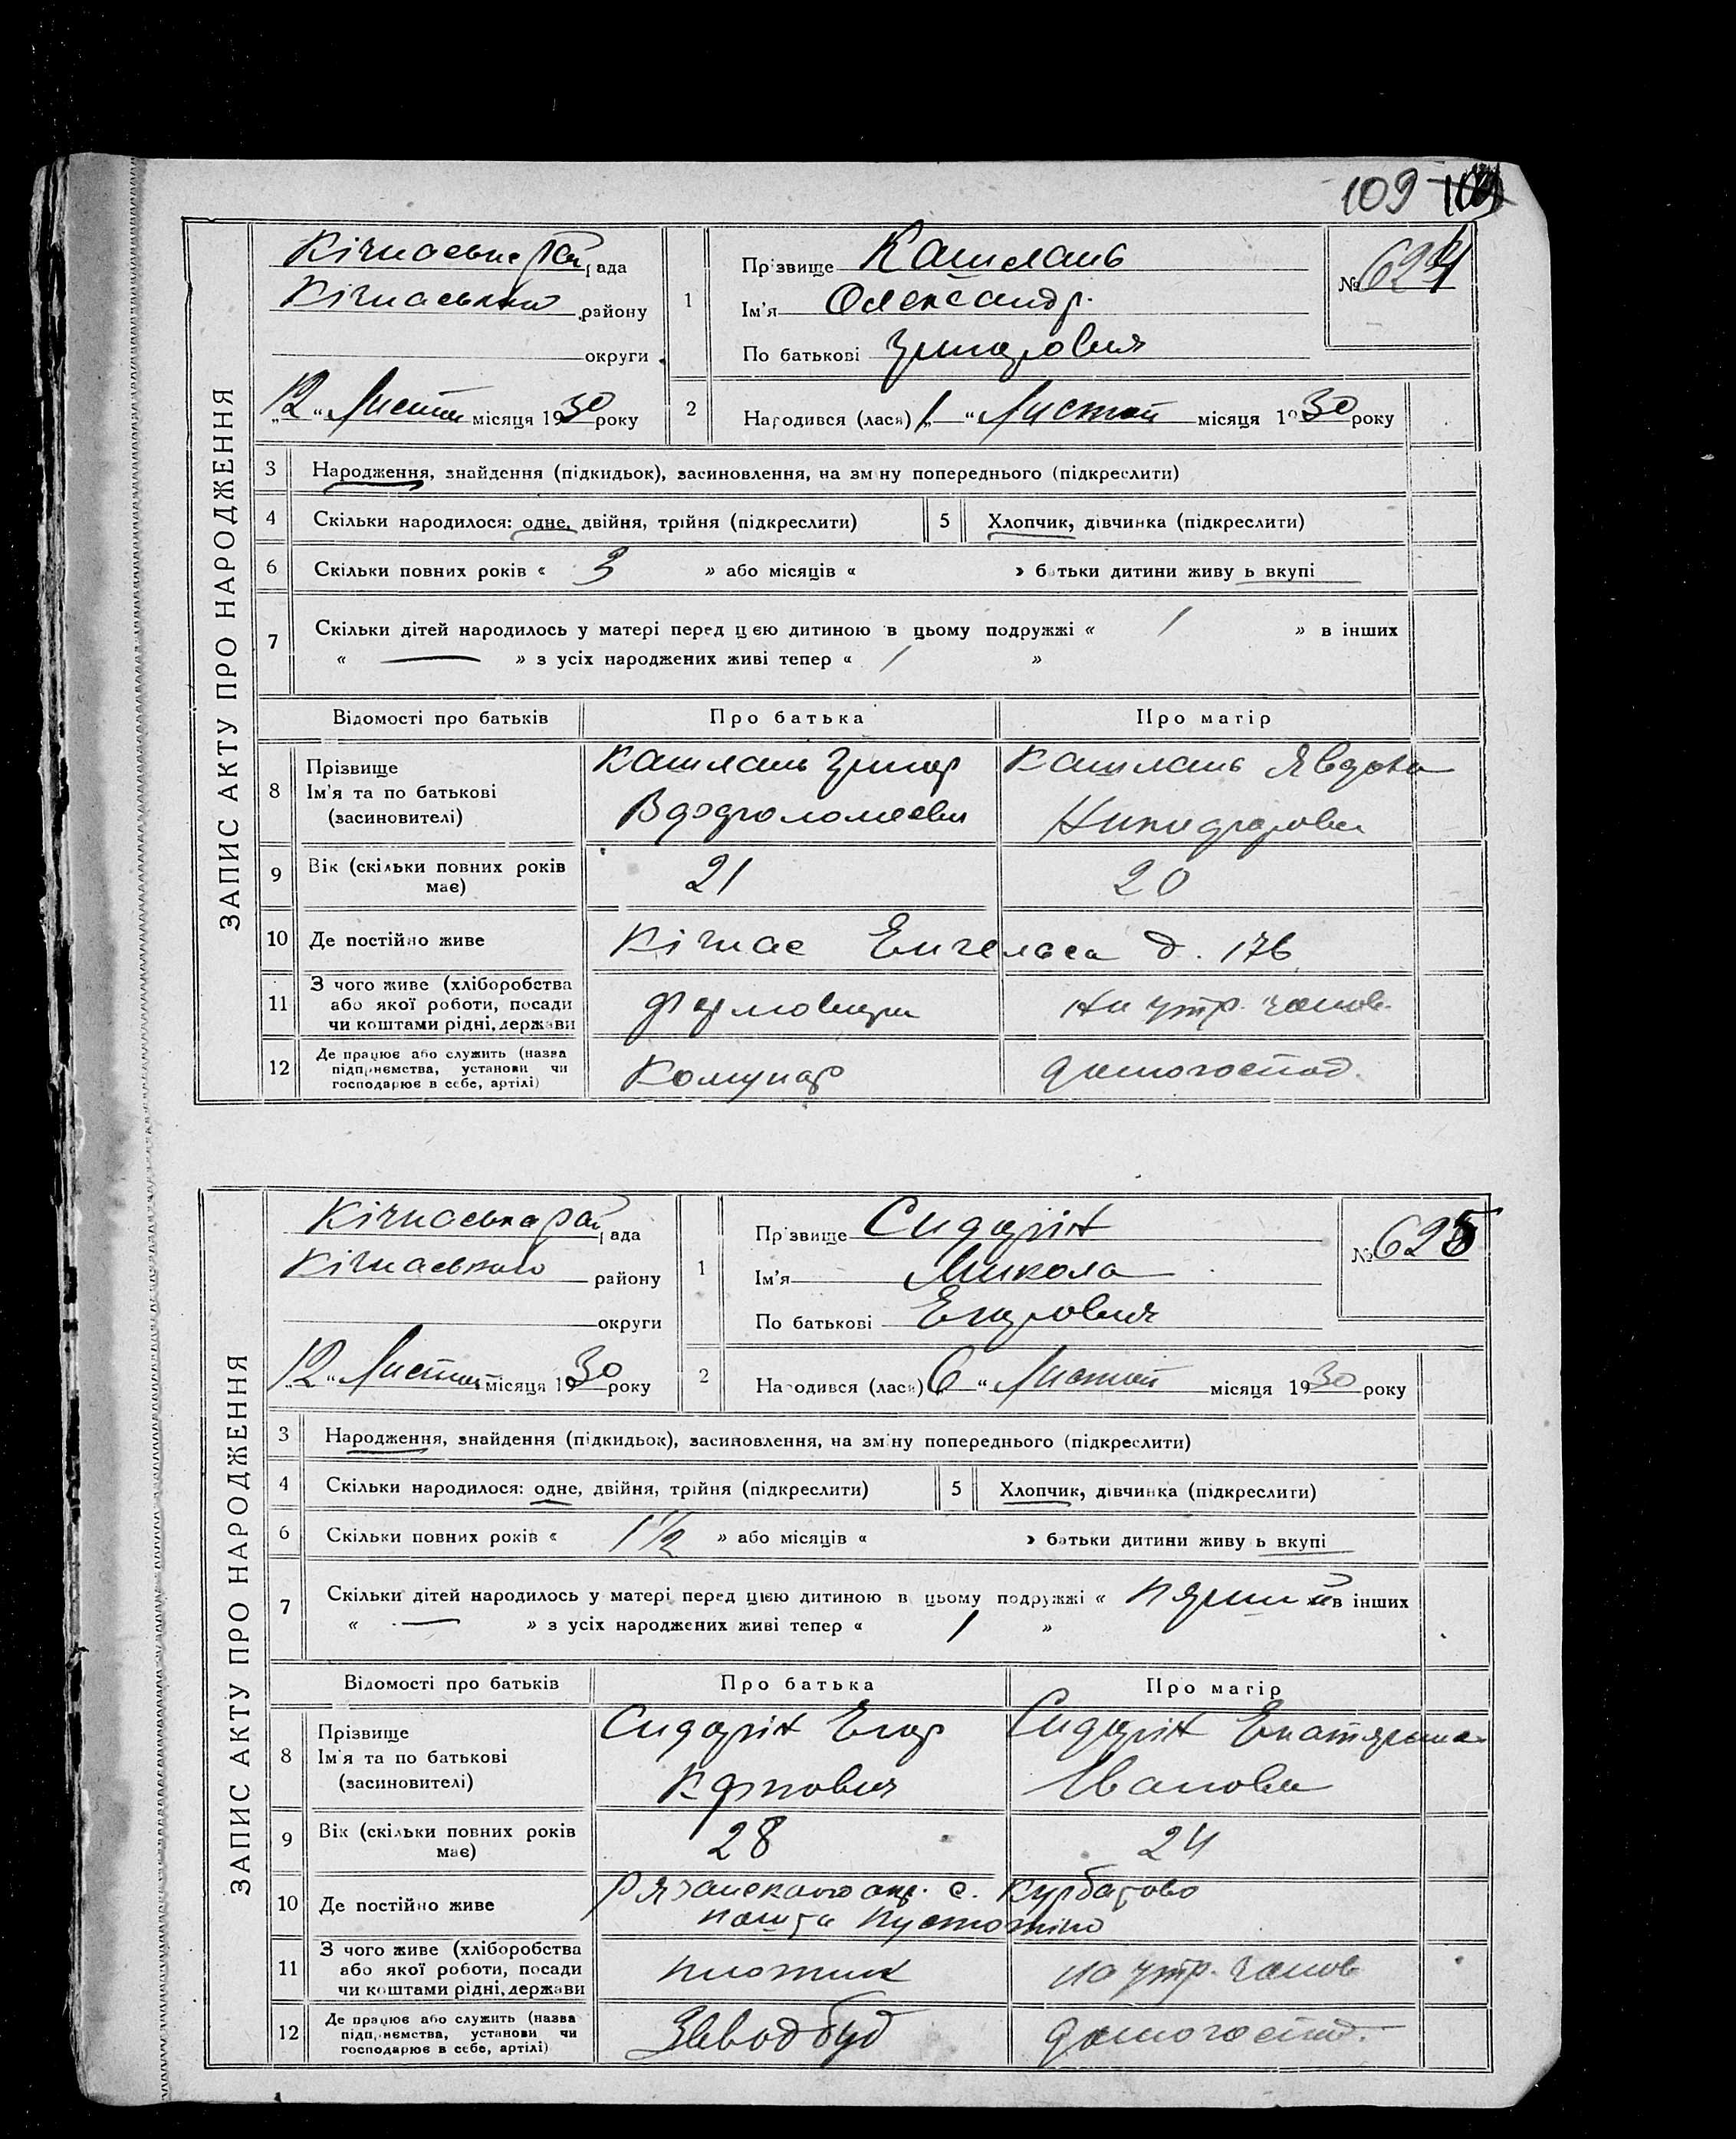 109
ЗАПИС АКТУ ПРО НАРОДЖЕННЯ
Кічкаська рай рада
Кічкаського району
округи
„12“ Листоп місяця 1930 року
1
Прізвище Кашлань
Ім'я Олександр.
По батькові Григорович
№ 624
2 Народився (лася) „1“ Листопай місяця 1930 року
3 Народження, знайдення (підкидьок), засиновлення, на зміну попереднього (підкреслити)
4 Скільки народилося: одне, двійня, трійня (підкреслити)
5 Хлопчик, дівчинка (підкреслити)
6 Скільки повних років « 3 » або місяців « » батьки дитини живуть вкупі
7 Скільки дітей народилось у матері перед цією дитиною в цьому подружжі « 1 » в інших
« — » з усіх народжених живі тепер « 1 »
Відомості про батьків Про батька Про матір
8 Прізвище
Ім'я та по батькові
(засиновителі)
Кашлань Григор
Кашлань Явдоха
9 Вік (скільки повних років має) 21 20
10 Де постійно живе Кічкас Енгельса д. 176
11 З чого живе (хліборобства
або якої роботи, посади
чи коштами рідні, держави
формовщик
На утр. чолов.
12 Де працює або служить (назва
підприємства, установи чи
господарює в себе, артілі)
Комунар
домогоспод.
ЗАПИС АКТУ ПРО НАРОДЖЕННЯ
Кічкаська рай рада
Кічкаського району
округи
„12“ Листоп місяця 1930 року
1
Прізвище Сидорін
Ім'я Микола
По батькові Егорович
№ 625
2 Народився (лася) „6“ Листопай місяця 1930 року
3 Народження, знайдення (підкидьок), засиновлення, на зміну попереднього (підкреслити)
4 Скільки народилося: одне, двійня, трійня (підкреслити)
5 Хлопчик, дівчинка (підкреслити)
6 Скільки повних років « 1 1/2 » або місяців « » батьки дитини живуть вкупі
7 Скільки дітей народилось у матері перед цією дитиною в цьому подружжі « в інших
« — » з усіх народжених живі тепер « 1 »
Відомості про батьків Про батька Про матір
8 Прізвище
Ім'я та по батькові
(засиновителі)
Сидорін Егор
Карпович
Сидорін Екатярина
Іванова
9 Вік (скільки повних років має) 28 24
10 Де постійно живе Рязанского окр. с. Курбатово
пошта Пустотіно
11 З чого живе (хліборобства
або якої роботи, посади
чи коштами рідні, держави
плотник
на утр. чолов
12 Де працює або служить (назва
підприємства, установи чи
господарює в себе, артілі)
Заводбуд
домогоспод.